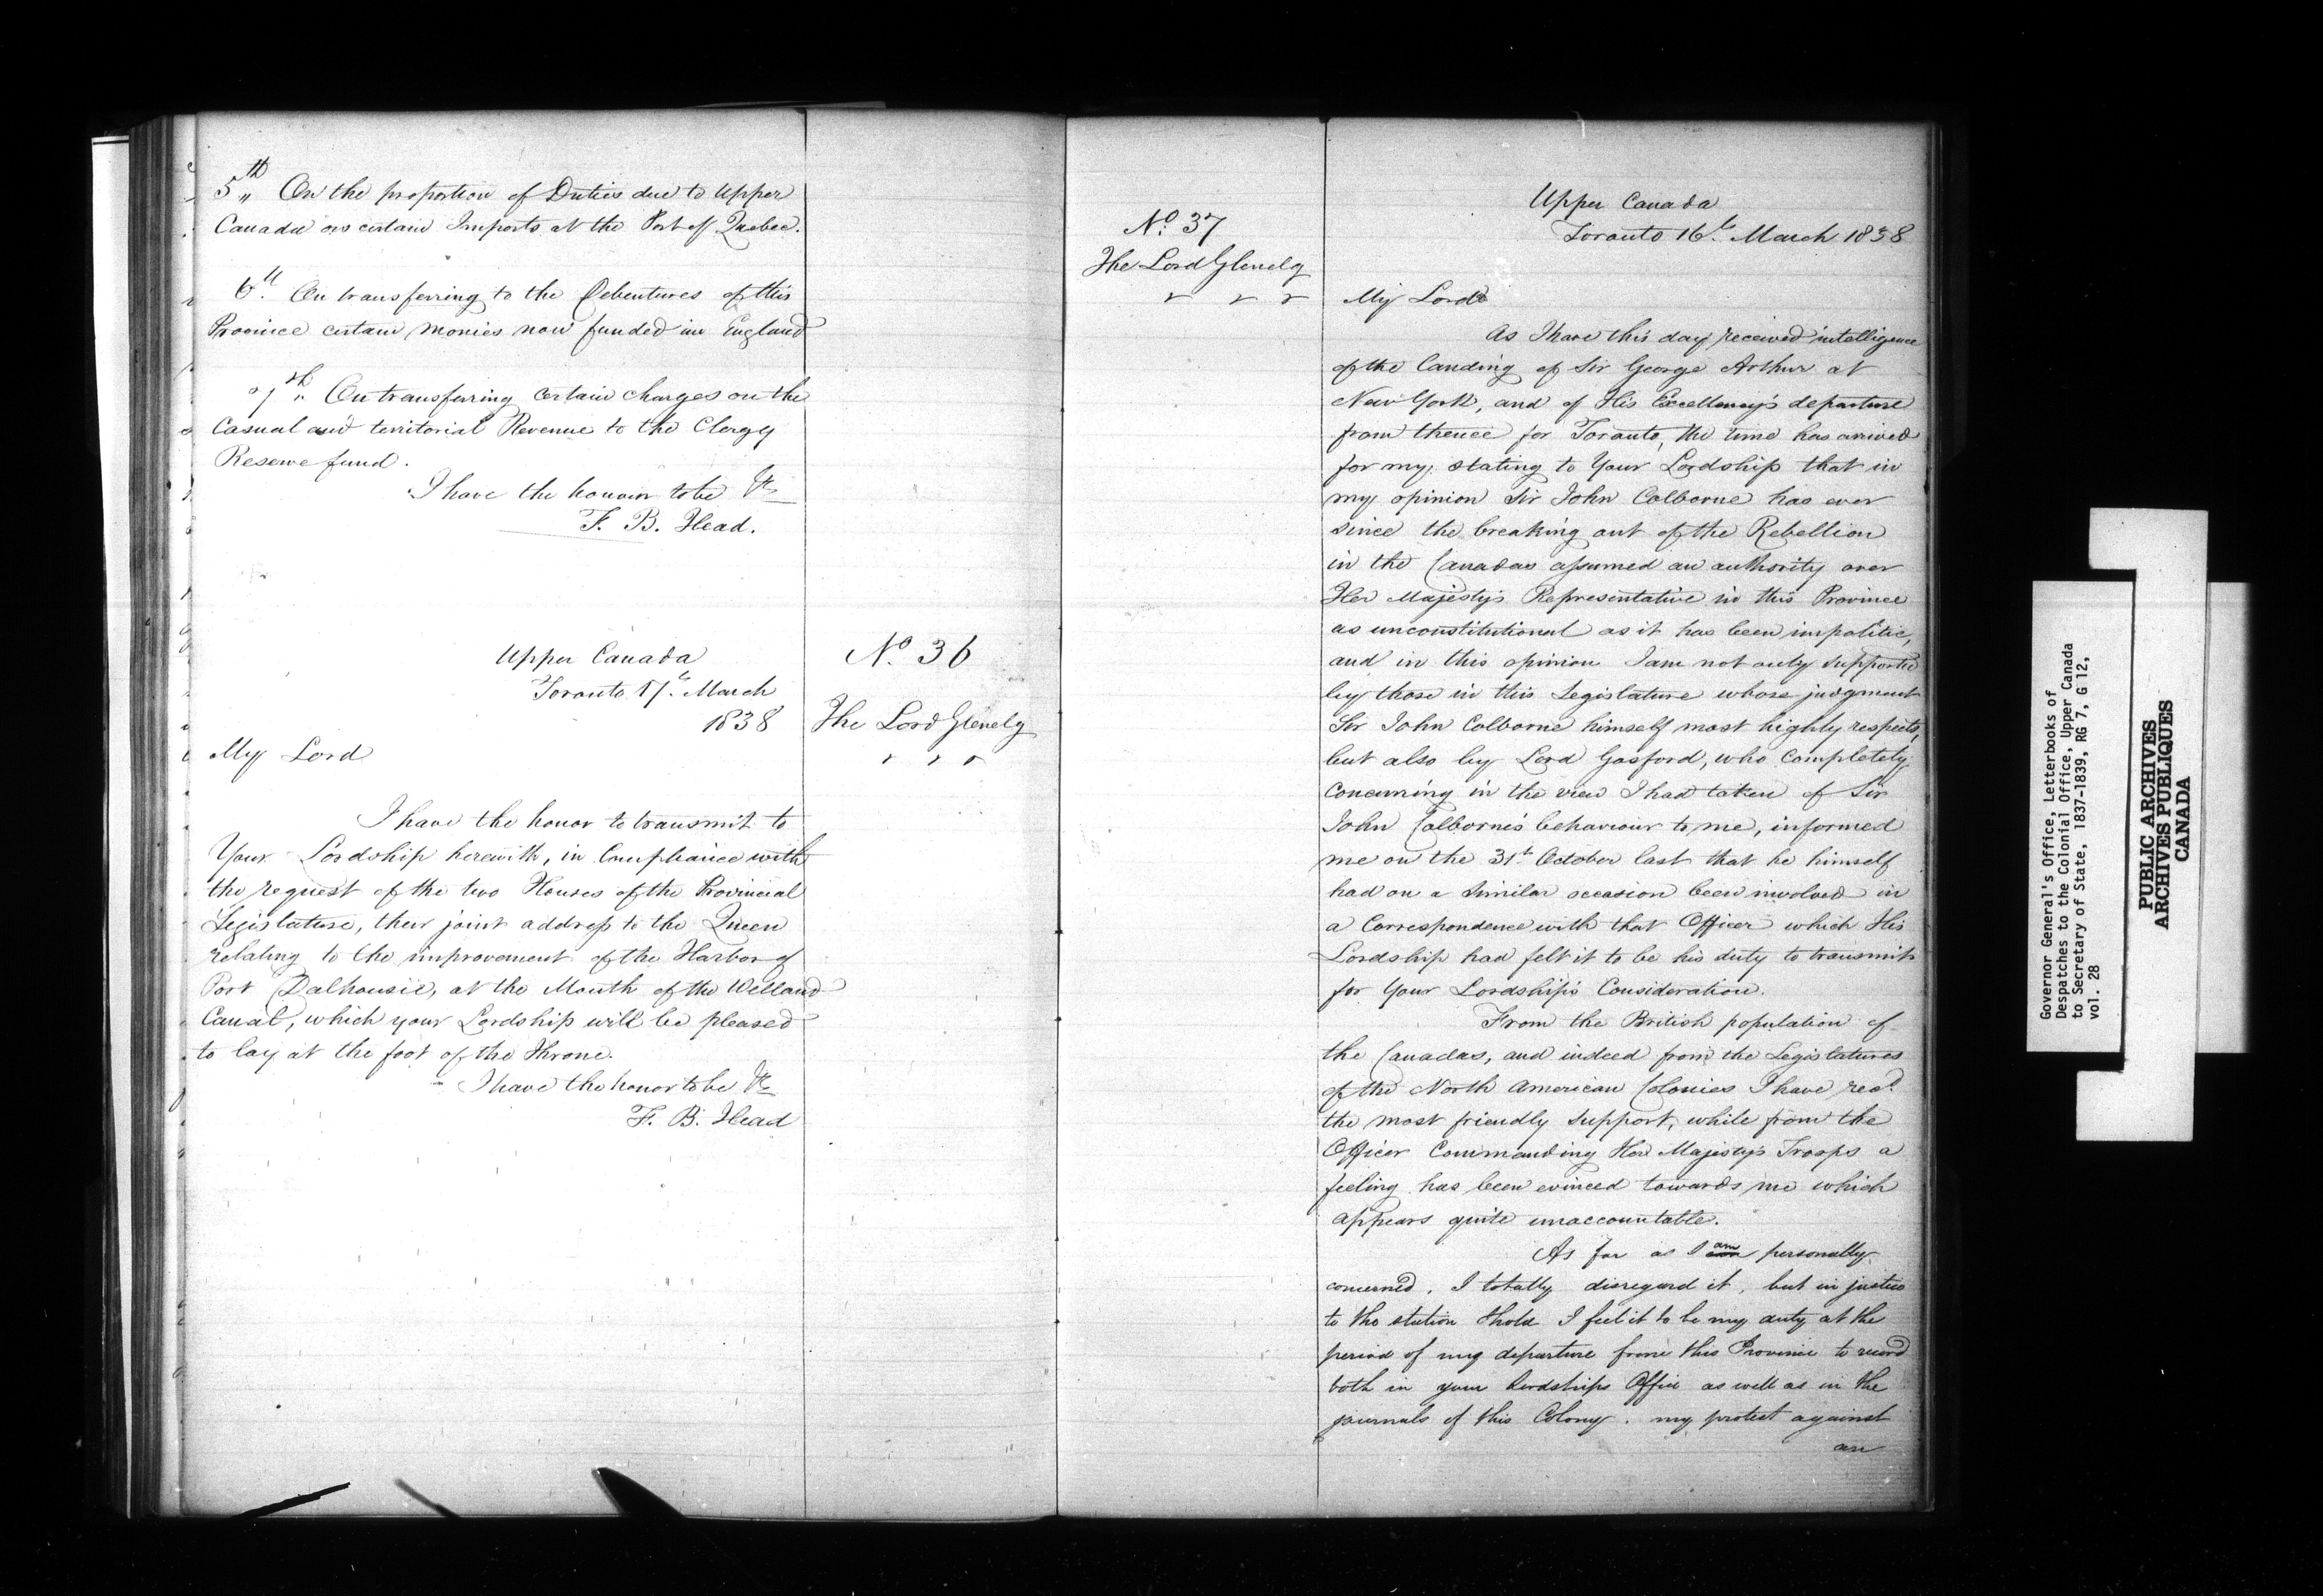 5th On the proportion of Duties due to Upper
Canada on certain Imports at the Port of Quebec.
6th. On transferring to the Debentures of this
Province certain monies now funded in England
7th On transferring certain charges on the
Casual and territorial Revenue to the Clergy
Reserve fund.
I have the honour to be &c
F. B. Head.
Upper Canada
Toronto 17th March
1838
No. 36
The Lord Glenelg
My Lord
I have the honor to transmit to
Your Lordship herewith, in Compliance with
the request of the two Houses of the Provincial
Legislature, their joint address to the Queen
relating to the improvement of the Harbor of
Port Dalhousie, at the Mouth of the Welland
Canal, which your Lordship will be pleased
to lay at the foot of the Throne.
I have the honor to be &c
F. B. Head
No. 37
The Lord Glenelg
Upper Canada
Toronto 16th March 1838
My Lord
As I have this day received intelligence
of the landing of Sir George Arthur at
New York, and of His Excellency's departure
from thence for Toronto, the time has arrived
for my stating to Your Lordship that in
my opinion Sir John Colborne has ever
since the breaking out of the Rebellion
in the Canadas assumed an authority over
Her Majesty's Representative in this Province
as unconstitutional as it has been impolitic,
and in this opinion I am not only supported
by those in this Legislature whose judgment
Sir John Colborne himself most highly respects,
but also by Lord Gosford, who completely
Concurring in the view I had taken of Sir
John Colborne's behaviour to me, informed
me on the 31st October last that he himself
had on a similar occasion been involved in
a Correspondence with that Officer which His
Lordship had felt it to be his duty to transmit
for Your Lordship's Consideration.
From the British population of
the Canadas, and indeed from the Legislatures
of the North American Colonies I have recd.
the most friendly support, while from the
Officer Commanding Her Majesty's Troops a
feeling has been evinced towards me which
appears quite unaccountable.
As far as I am personally
concerned, I totally disregard it, but in justice
to the station I hold I feel it to be my duty at the
period of my departure from this Province to record
both in your Lordships Office as well as in the
journals of this Colony. my protest against
an
Governor General's Office, Letterbooks of
Despatches to the Colonial Office, Upper Canada
to Secretary of State, 1837-1839, RG 7, G 12,
vol. 28
PUBLIC ARCHIVES
ARCHIVES PUBLIQUES
CANADA